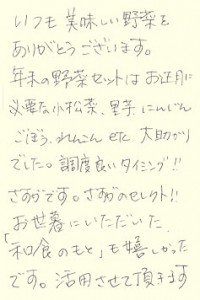 いつも美味しい野菜を
ありがとうございます。
年末の野菜セットは お正月に
必要な小松菜、里芋、にんじん
ごぼう、れんこん etc 大助かり
でした。調度良いタイミング!!
さすがです。さすがのセレクト!!
お世暮にいただいた
「和食のもと」も嬉しかった
です。活用させて頂きます